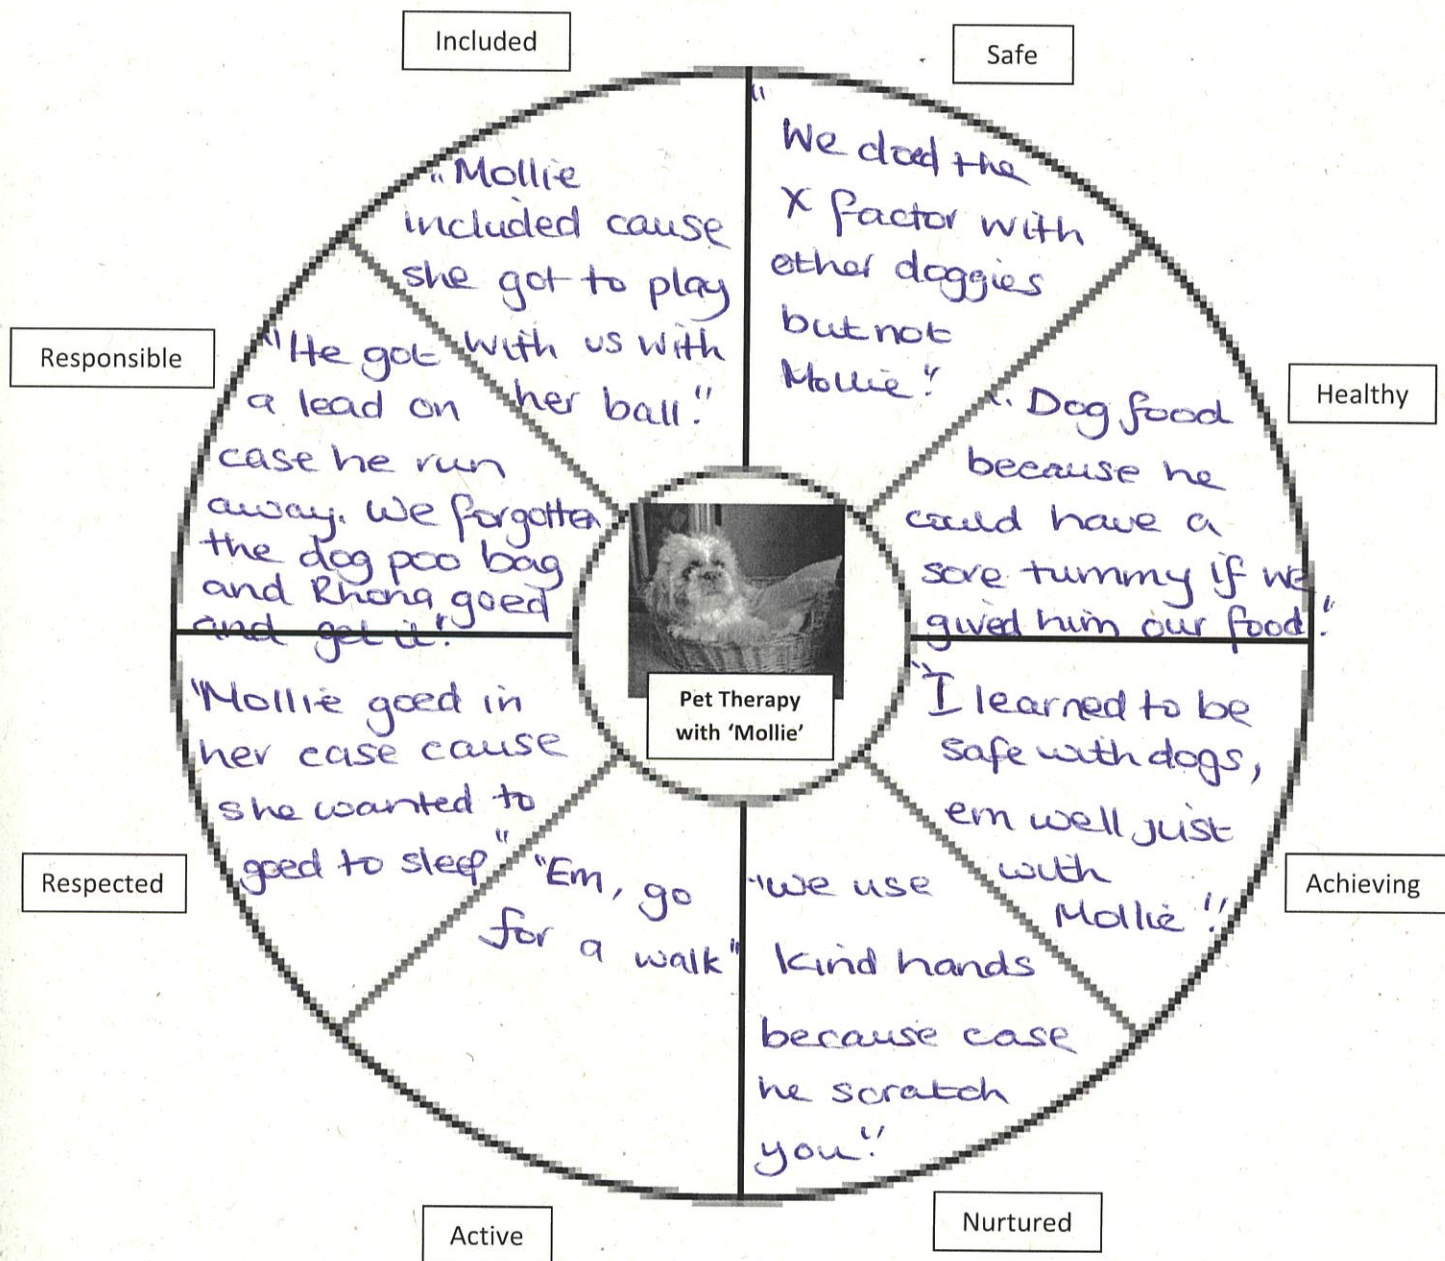 Included
"Mollie
included cause
she got to play
with us with
her ball."
Safe
"
We doed the
X factor with
other doggies
but not
Mollie."
Healthy
"Dog food
because he
could have a
sore tummy if we
gived him our food."
Achieving
"I learned to be
safe with dogs,
em well just
with
Mollie."
Nurtured
"we use
kind hands
because case
he scratch
you."
Active
"Em, go
for a walk"
Respected
"Mollie goed in
her case cause
she wanted to
goed to sleep."
Responsible
"He got
a lead on
case he run
away. We forgotten
the dog poo bag
and Rhona goed
and get it".
Pet Therapy
with 'Mollie'